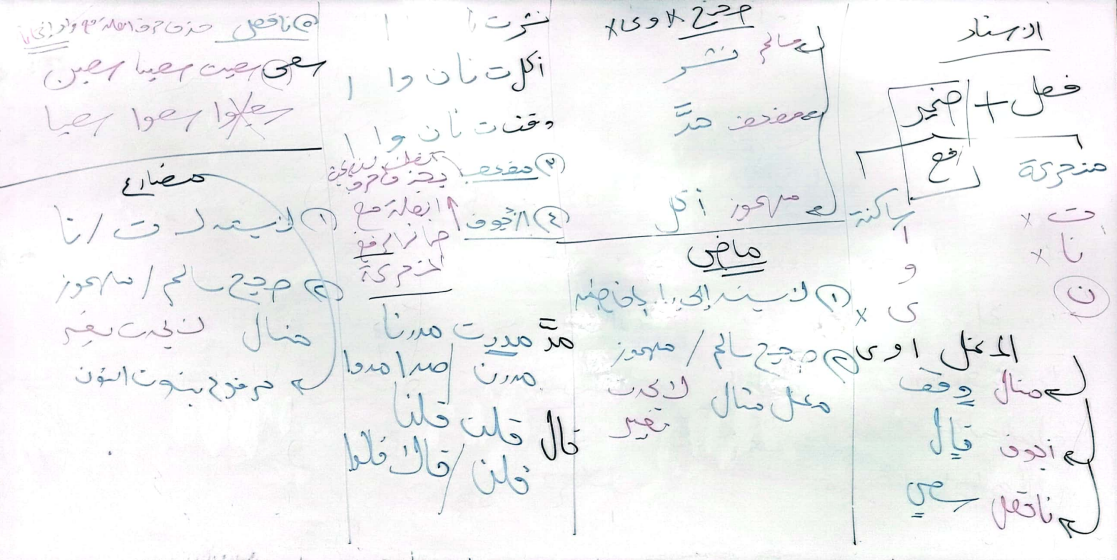 الإسناد
فعل + ضمير
رفع
متحركة
ساكنة
ت x
نا x
ن
ا
و
ى x
المعتل ا و ى
مثال وقف
أجوف قال
ناقص سعى
صحيح x ا و ى x
سالم نشر
مضعف مدَّ
مهموز أكل
ماضى
① لا يسند إلى ياء المخاطبه
② صحيح سالم / مهموز
معتل مثال لا يحدث تغير
نشرت ا
أكل ت نا ن وا ا
وقف ت نا ن وا ا
③ مضعف
④ الأجوف
العلة مع
ضمائر الرفع
المتحركة
مدَّ مددت مددنا
مددن / مدا مدوا
قال قلت قلنا
قلن / قالا قالوا
⑤ ناقص حذف حرف العلة مع واو الجماعة
سعى سعيت سعينا سعين
سعيوا سعوا سعيا
مضارع
① لا يسند لـ ت / نا
② صحيح سالم / مهموز
مثال لا يحدث تغير
مرفوع بثبوت النون